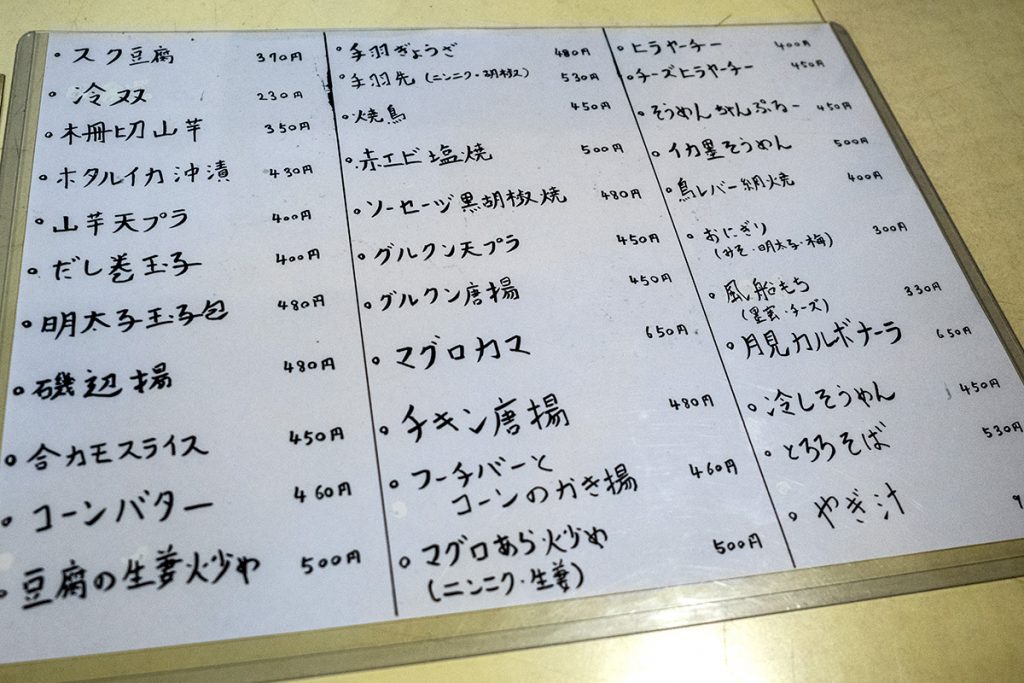 ・スク豆腐 370円
・冷双 230円
・木冊切山芋 350円
・ホタルイカ沖漬 430円
・山芋天プラ 400円
・だし巻玉子 400円
・明太子玉子包 480円
・磯辺揚 480円
・合カモスライス 450円
・コーンバター 460円
・豆腐の生姜火炒め 500円
・手羽ぎょうざ 480円
・手羽先(ニンニク・胡椒) 530円
・焼鳥 450円
・赤エビ塩焼 500円
・ソーセージ黒胡椒焼 480円
・グルクン天プラ 450円
・グルクン唐揚 450円
・マグロカマ 650円
・チキン唐揚 480円
・フーチバーと
コーンのかき揚 460円
・マグロあら火炒め 500円
(ニンニク・生姜)
・ヒラヤーチー 400円
・チーズヒラヤーチー 450円
・そうめんちゃんぷるー 450円
・イカ墨そうめん 500円
・鳥レバー網焼 400円
・おにぎり 300円
(みそ・明太子・梅)
・風船もち 330円
(・チーズ)
・月見カルボナーラ 650円
・冷しそうめん 450円
・とろろそば 530円
・やぎ汁 9